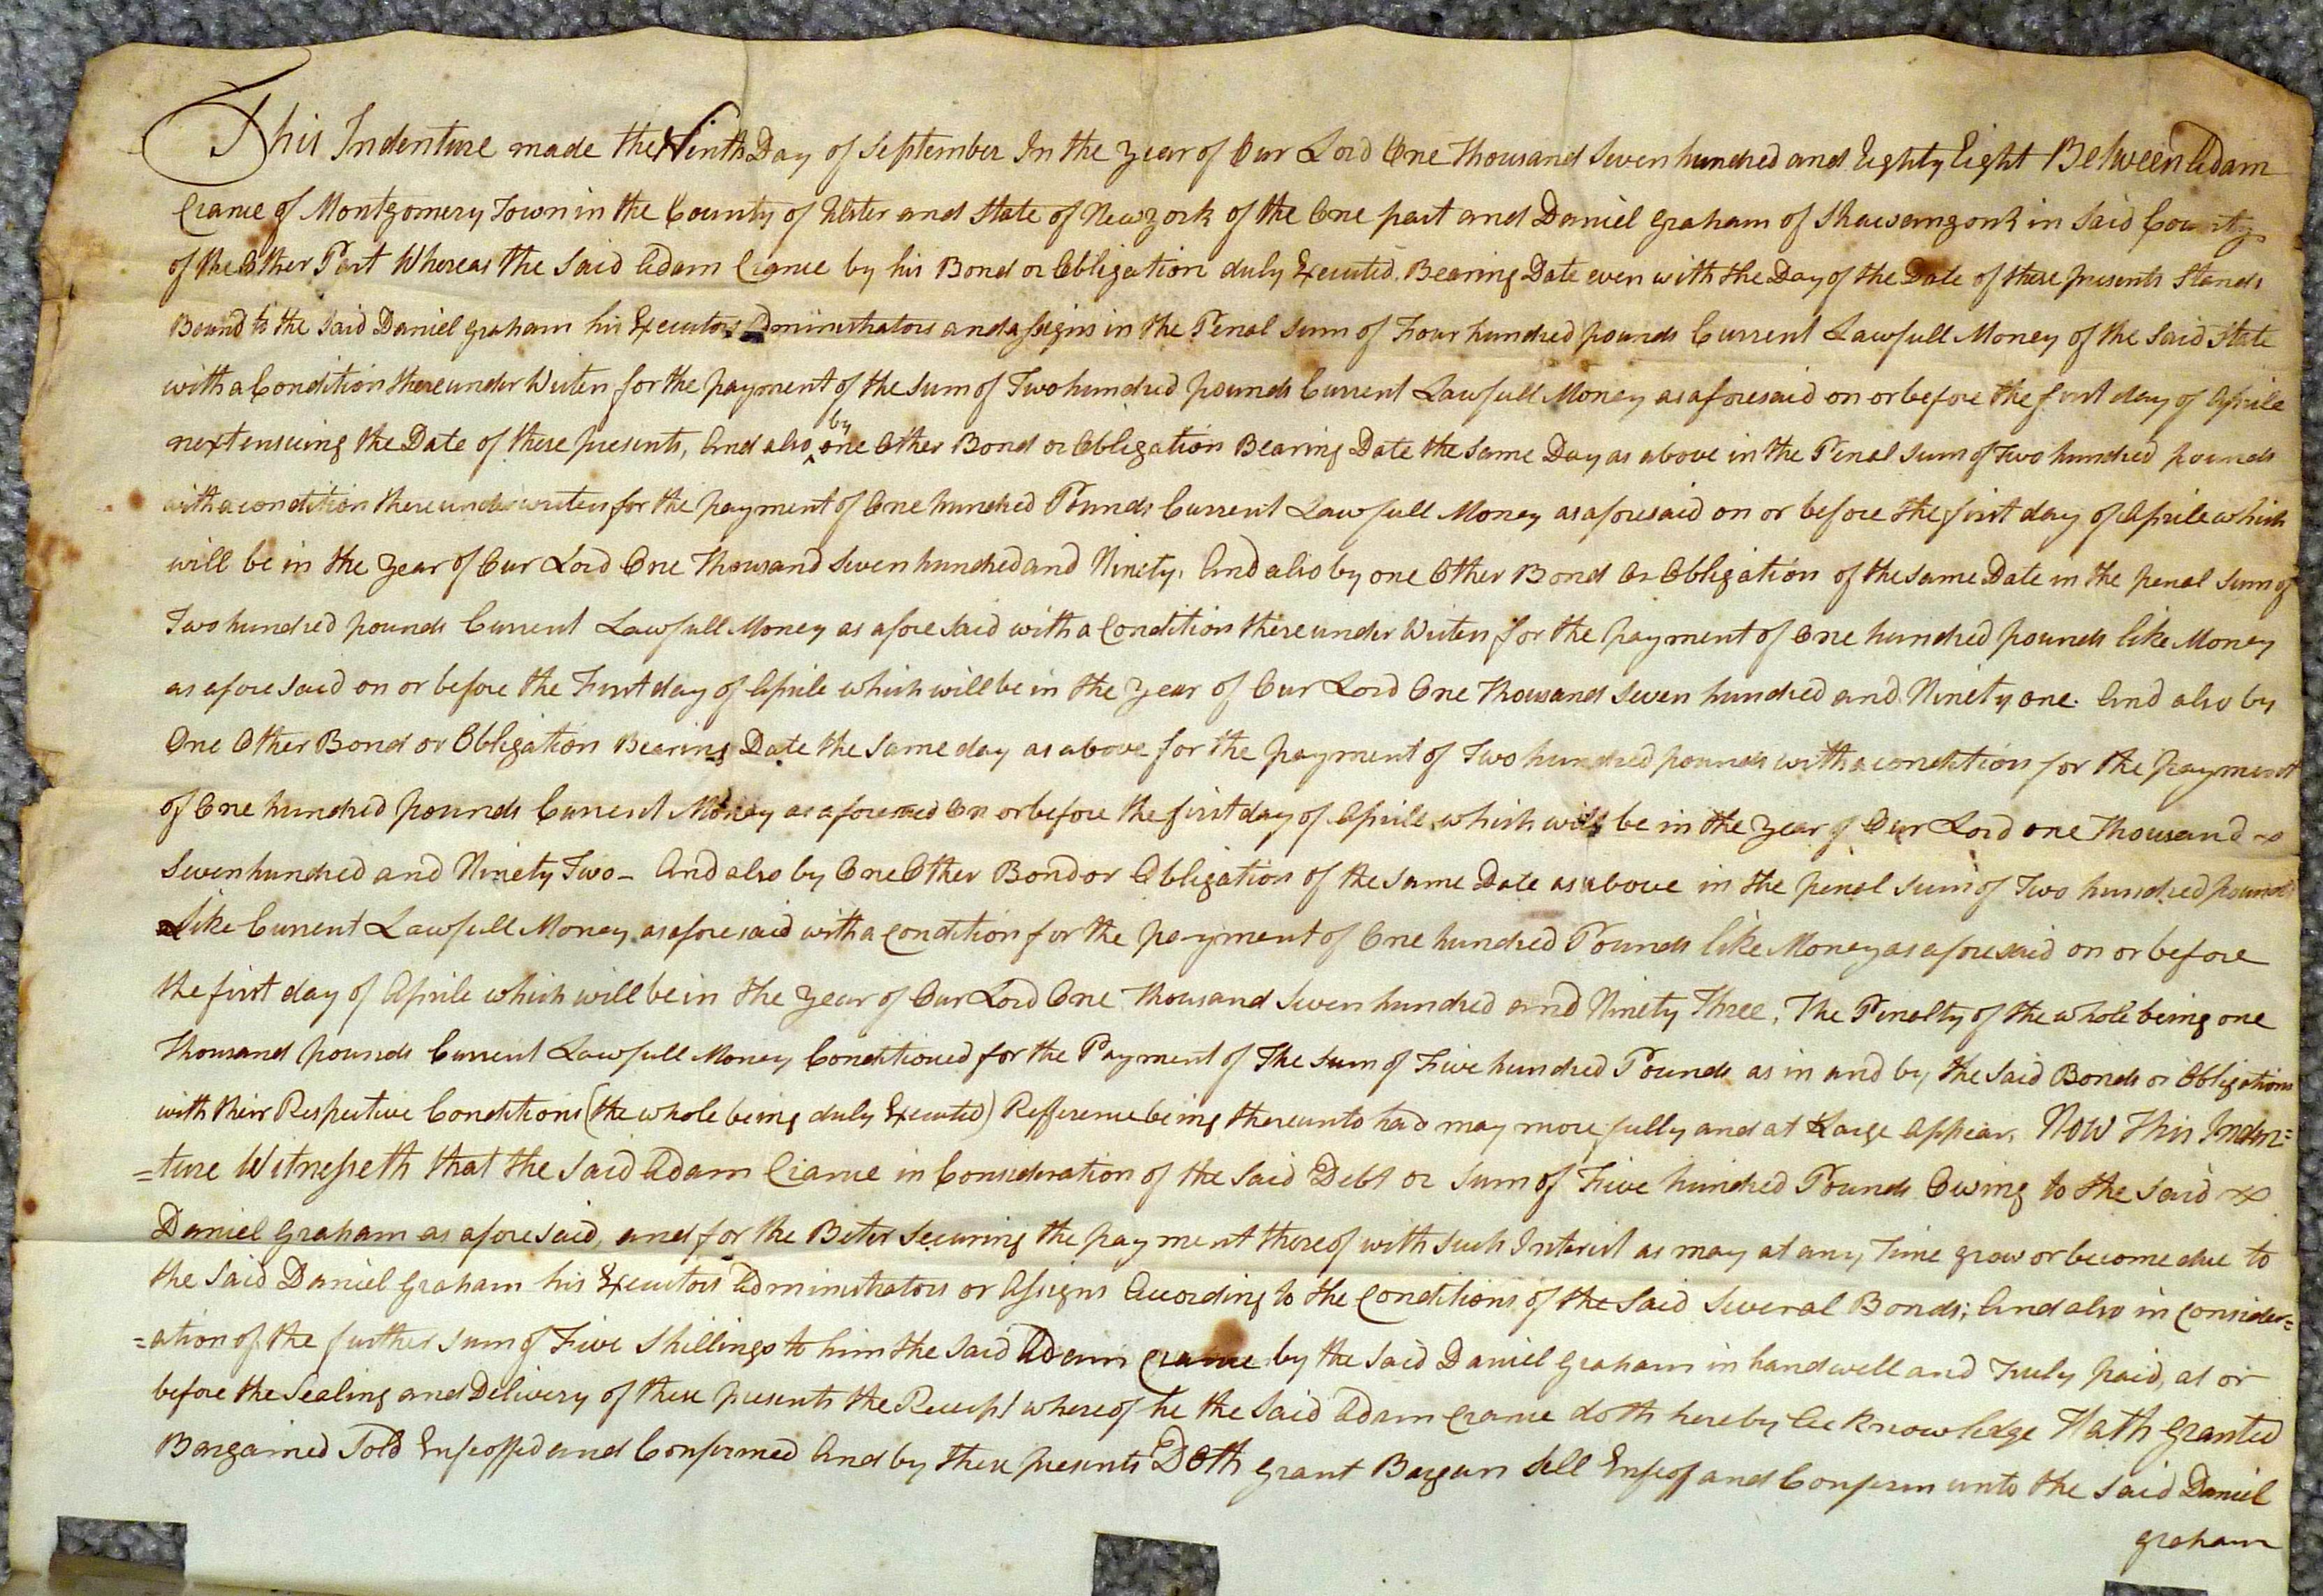 This Indenture made the Ninth Day of September In the Year of Our Lord One Thousand Seven hundred and Eighty Eight Between Adam
Crane of Montgomery Town in the County of Ulster and State of New york of the One part and Daniel Graham of Shawangonk in Said County
of the Other Part Whereas the Said Adam Crane by his Bond or Obligation duly Executed. Bearing Date even with the Day of the Date of these presents Stands
Bound to the Said Daniel Graham his Executors Administrators and assigns in the Penal Sum of Four hundred pounds Current Lawfull Money of the Said State
with a Condition thereunder Writen for the payment of the Sum of Two hundred pounds Current Lawfull Money as aforesaid on or before the first day of Aprile
next ensueing the Date of these presents, And also by one Other Bond or Obligation Bearing Date the Same Day as above in the Penal Sum of Two hundred pounds
with a condition thereunder writen for the payment of One hundred Pounds Current Lawfull Money as aforesaid on or before the first day of Aprile which
will be in the Year of Our Lord One Thousand Seven hundred and Ninety. And also by one Other Bond Or Obligation of the Same Date in the penal Sum of
Two hundred pounds Current Lawfull Money as afore Said with a Condition thereunder Writen for the payment of One hundred pounds like Money
as afore Said on or before the First day of Aprile which will be in the Year of Our Lord One Thousand Seven hundred and Ninety one. And also by
One Other Bond or Obligation Bearing Date the Same day as above for the payment of Two hundred pounds with a condition for the payment
of One hundred pounds Current Money as aforesaied On or before the first day of Aprile which will be in the Year of Our Lord one Thousand
Seven hundred and Ninety Two - And also by One Other Bond or Obligation of the Same Date as above in the penal Sum of Two hundred pounds
Like Current Lawfull Money as afore said with a Condition for the payment of One hundred Pounds like Money as afore said on or before
the first day of Aprile which will be in the Year of Our Lord One Thousand Seven hundred and Ninety Three, The Penalty of the whole being one
Thousand pounds Current Lawfull Money Conditioned for the Payment of The Sum of Five hundred Pounds as in and by the Said Bonds or Obligations
with their Respective Conditions (the whole being duly Executed) Refference being thereunto had may more fully and at Large Appear, Now This Inden=
=ture Witnesseth that the Said Adam Crane in Consideration of the Said Debt or Sum of Five hundred Pounds Owing to the Said
Daniel Graham as afore Said, and for the Beter Securing the payment thereof with Such Interest as may at any Time grow or become due to
the Said Daniel Graham his Executors Administrators or Assigns According to the Conditions of the Said Several Bonds; And also in Consider=
=ation of the further Sum of Five Shillings to him the Said Adam Crane by the Said Daniel Graham in hand well and Truly paid, at or
before the Sealing and Delivery of these presents the Receipt whereof he the Said Adam Crane doth hereby Acknowledge Hath Granted
Bargained Sold Enfeoffed and Confirmed And by these presents Doth grant Bargan Sell Enfeof and Confirm unto the Said Daniel
Graham